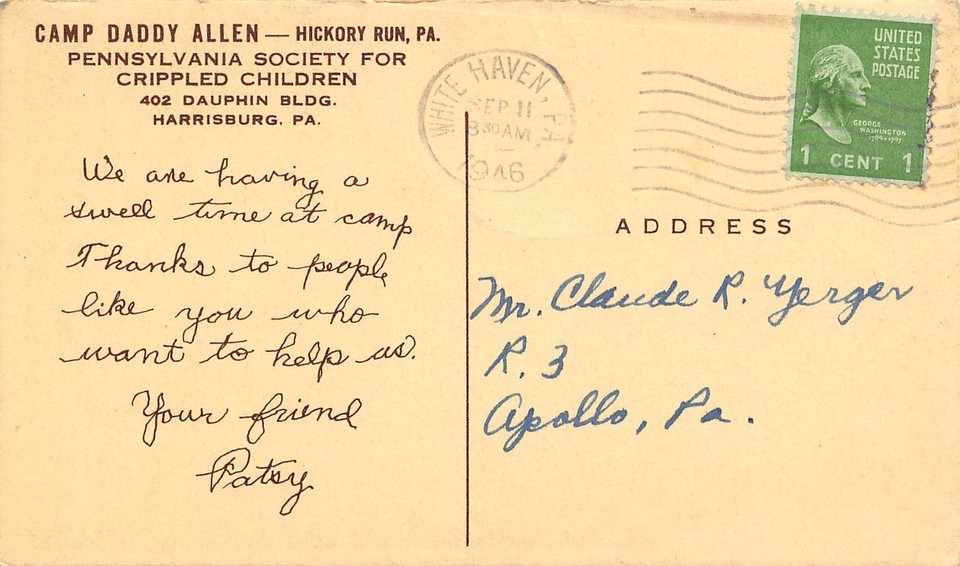 CAMP DADDY ALLEN — HICKORY RUN, PA.
PENNSYLVANIA SOCIETY FOR
CRIPPLED CHILDREN
402 DAUPHIN BLDG.
HARRISBURG, PA.
We are having a
swell time at camp
Thanks to people
like you who
want to help us.
Your friend
Patsy
WHITE HAVEN, PA.
SEP 11
8 30 AM
1946
UNITED
STATES
POSTAGE
GEORGE
WASHINGTON
1789-1797
1 CENT 1
ADDRESS
Mr. Claude R. Yerger
R. 3
Apollo, Pa.